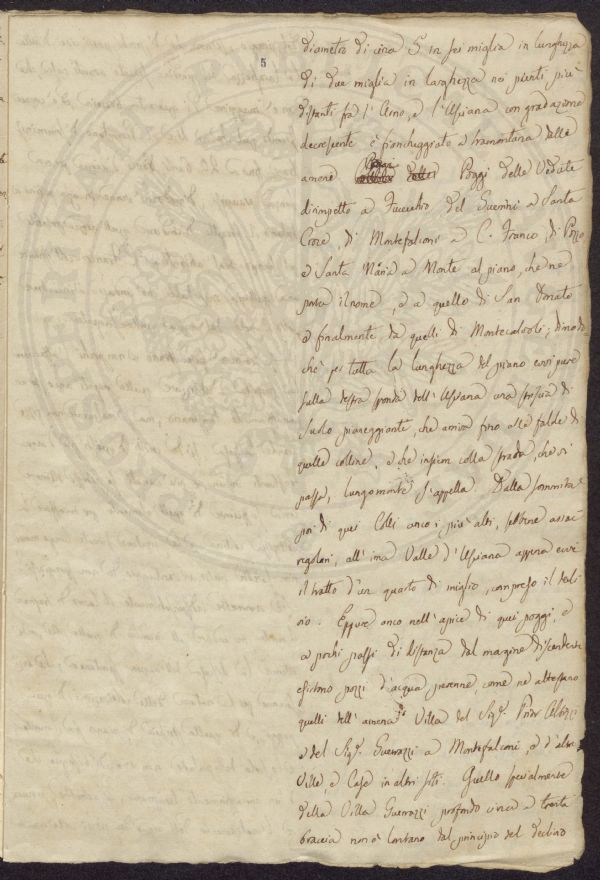 5
diametro di circa 5 in sei miglia in lunghezza
di due miglia in larghezza nei punti più
distanti fra l'Arno, e l'Usciana con gradazione
decrescente è fiancheggiato a tramontana dalle
amene Poggi Poggi delle Vedute
dirimpetto a Fucecchio del Guerrini a Santa
Croce, di Montefalconi a C. Franco, di Pozzo
a Santa Maria a Monte al piano, che ne
porta il nome, e a quello di San Donato
e finalmente da quelli di Montecalvoli; dimodo
chè per tutta la lunghezza del piano evvi pure
sulla destra sponda dell'Usciana una striscia di
suolo pianeggiante, che arriva fino alle falde di
quelle colline, e che insiem colla strada, che vi
passa, lungomonte s'appella. Dalla sommità
poi di quei Colli anco i più alti, sebbene assai
regolari, all'ima Valle d'Usciana appena evvi
il tratto d'un quarto di miglio, compreso il decli
vio. Eppure anco nell'apice di quei poggi, e
a pochi passi di distanza dal margine discendente
esistono pozzi d'acqua perenne come ne attestano
quelli dell'amena Villa del Sig.
e del Sig. Guerrazzi a Montefalconi, e d'altre
Ville, e Case in altri siti. Quello specialmente
della Villa Guerrazzi profondo circa a trenta
braccia non è lontano dal principio del declivio